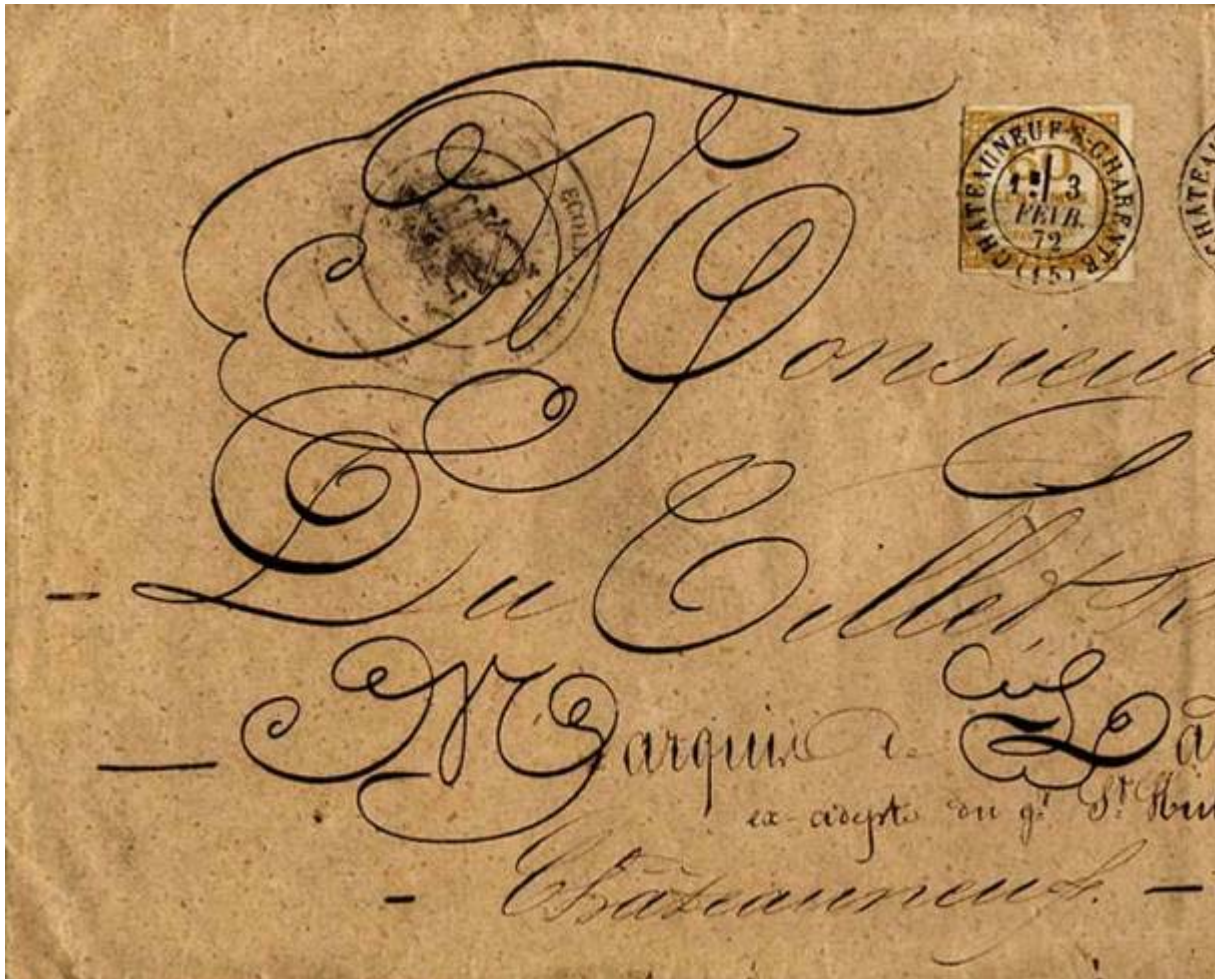 CHATEAUNEUF-S-CHARENTE
1 3
FEVR.
72
(15)
CHATEAU
ECOLE
Monsieur
Du Tillet
Marquis de
ex-adepte du gd St Hu
Châteauneuf.